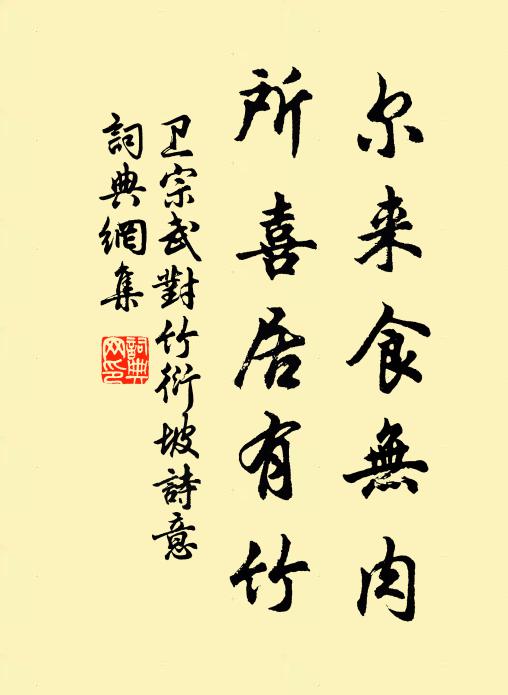 尔来食無肉
所喜居有竹
卫宗武對竹衍坡詩意
詞典網集
詞典
网印